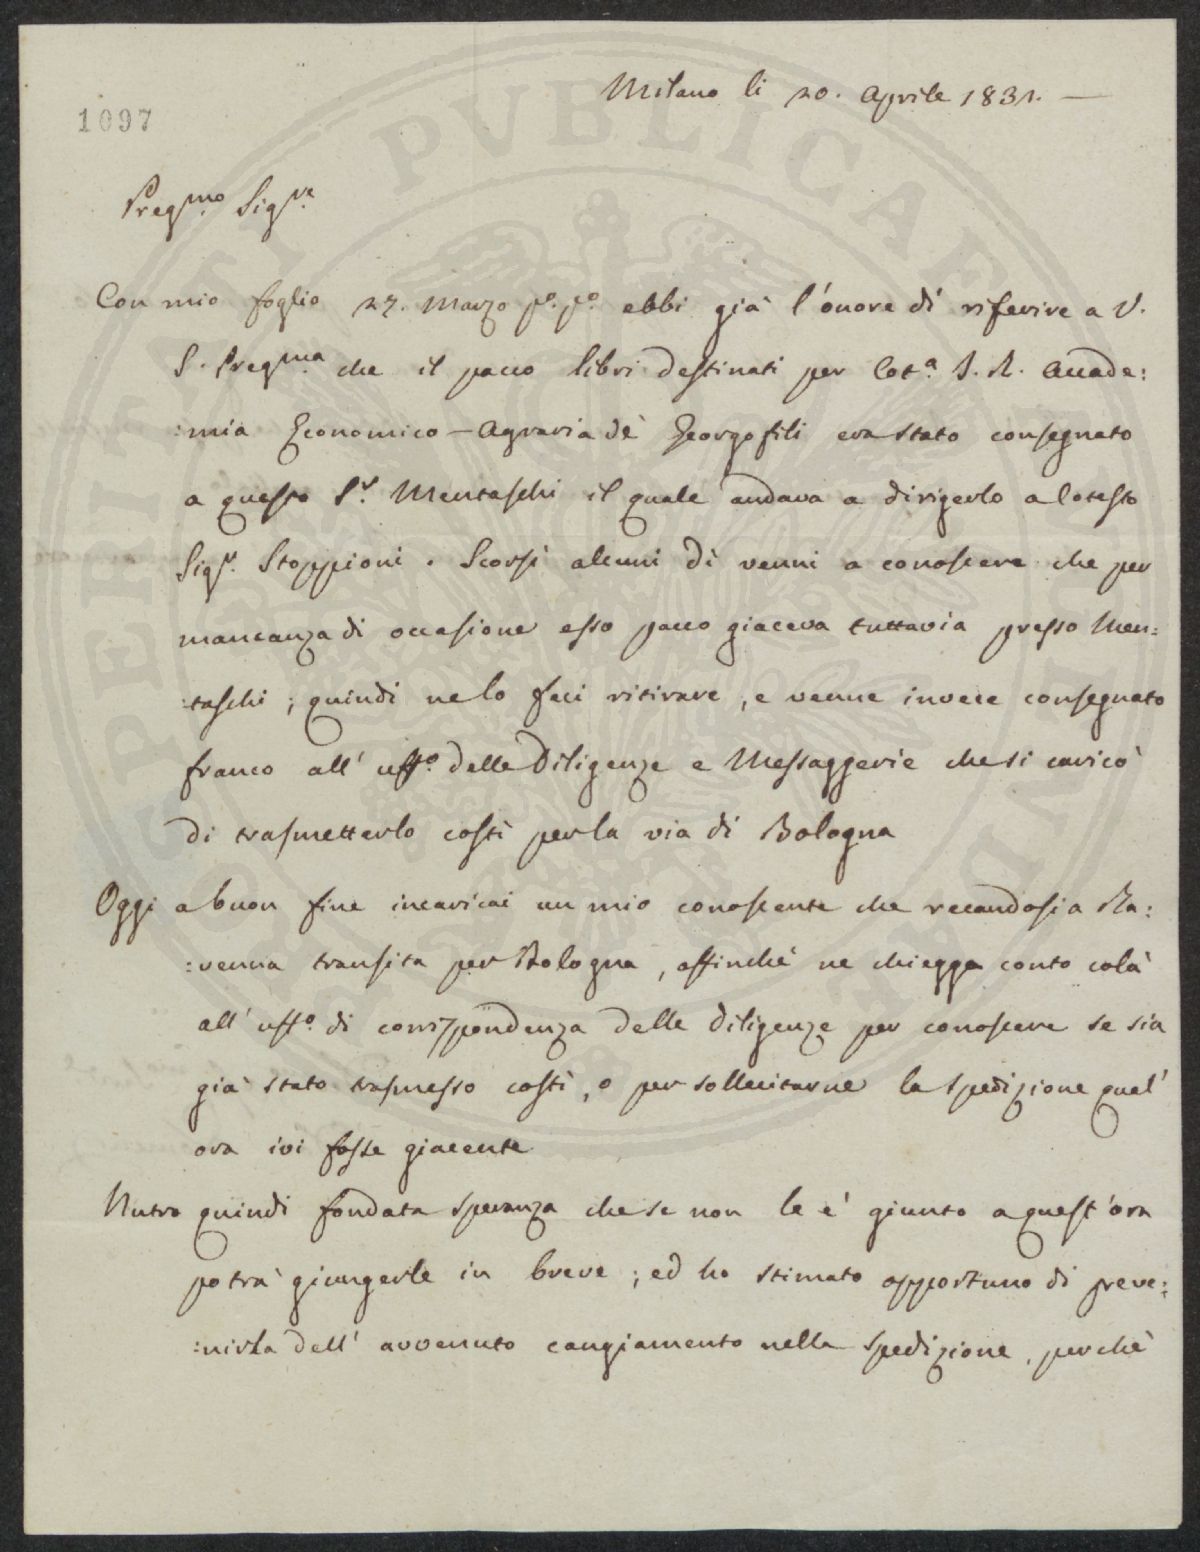 Milano li 20. Aprile 1831. —
1097
Pregmo. Sigre.
Con mio foglio 27. Marzo po. po. ebbi già l'onore di riferire a V.
S. Pregma. che il pacco libri destinati per Cota. I. R. Accade:
:mia Economico — Agraria de' Georgofili era stato consegnato
a questo Sr. Mentaschi il quale andava a dirigerlo a Cotesto
Sigr. Stoppioni. Scorsi alcuni dì venni a conoscere che per
mancanza di occasione esso pacco giaceva tuttavia presso Men:
:taschi; quindi ne lo feci ritirare, e venne invece consegnato
franco all' uffo. delle Diligenze e Messaggerie che si caricò
di trasmetterlo costì per la via di Bologna
Oggi a buon fine incaricai un mio conoscente che recandosi a Ra:
:venna transita per Bologna, affinchè ne chiegga conto colà
all' uffo. di corrispondenza delle Diligenze per conoscere se sia
già stato trasmesso costì, o per sollecitarne la spedizione qual'
ora ivi fosse giacente
Nutro quindi fondata speranza che se non le è giunto a quest'ora
potrà giungerle in breve; ed ho stimato opportuno di preve:
:nirla dell' avvenuto cangiamento nella spedizione, perchè
PVBLICAE